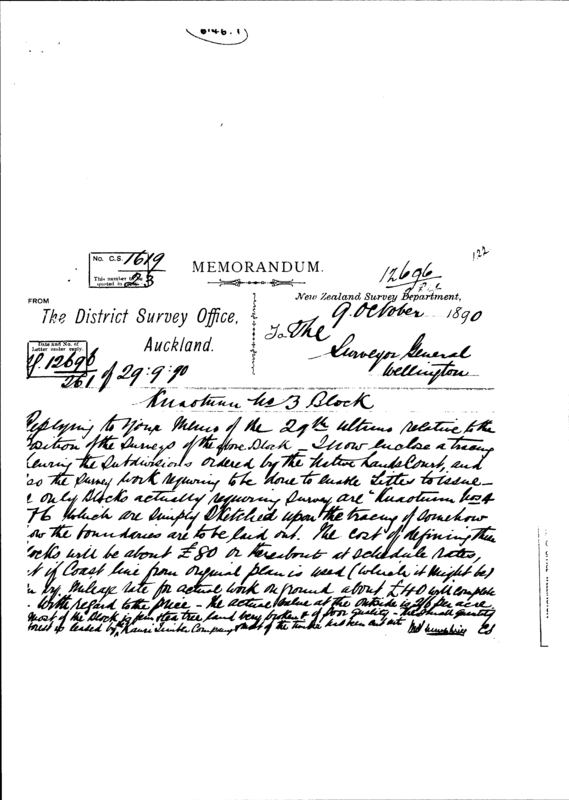 6146.1
122
No. C.S. 1619
This number to be quoted in
23
MEMORANDUM.
12696
New Zealand Survey Department,
9 October 1890
FROM
The District Survey Office,
Auckland.
To The
Surveyor General
Wellington
Date and No. of
Letter under reply.
12696
261 of 29.9.90
Kuaotunu No 3 Block
Replying to your Memo of the 29th ultimo relative to the
position of the Surveys of the above Block I now enclose a tracing
the Subdivisions ordered by the Native Lands Court, and
the Survey work requiring to be done to enable Titles to issue
only Blocks actually requiring Survey are Kuaotunu
which are simply sketched upon the tracing to
the boundaries are to be laid out. The cost of defining these
will be about £80 or thereabout at schedule rates,
if Coast line from original plan is used (which it might be)
by Mileage rate for actual work on ground about £40 will complete
With regard to the price - the actual value at the outside is 2/6 per acre
most of the Block is tea tree land very broken & of poor quality - the small quantity
forest is leased by the Kauri Timber Company & most of the timber has been cut out